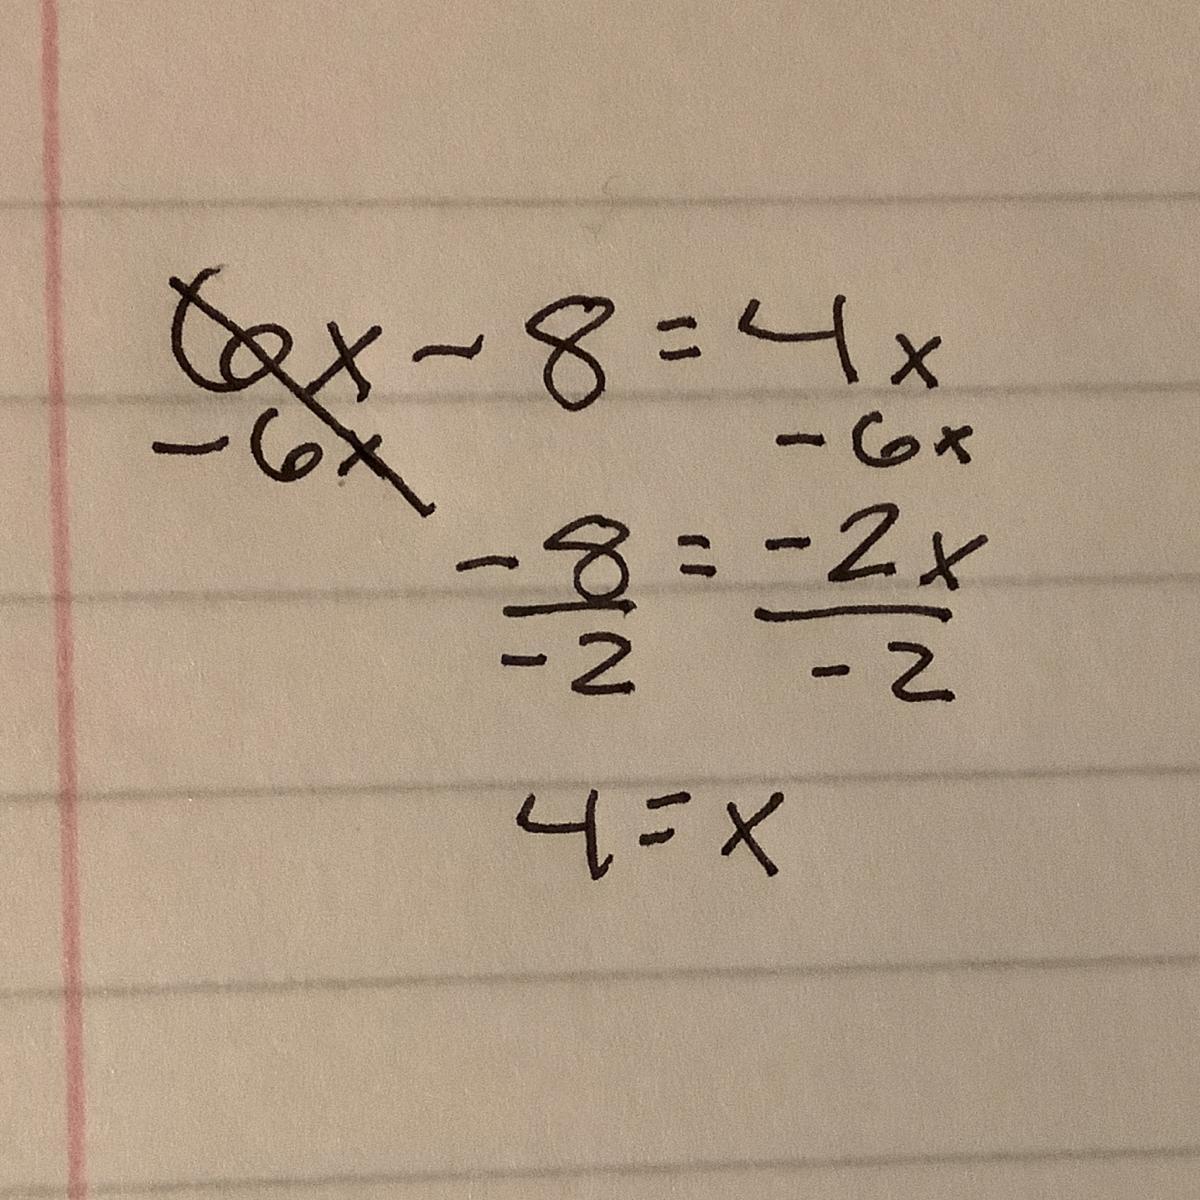 6x - 8 = 4x
-6x -6x
-8 = -2x
-2 -2
4 = x